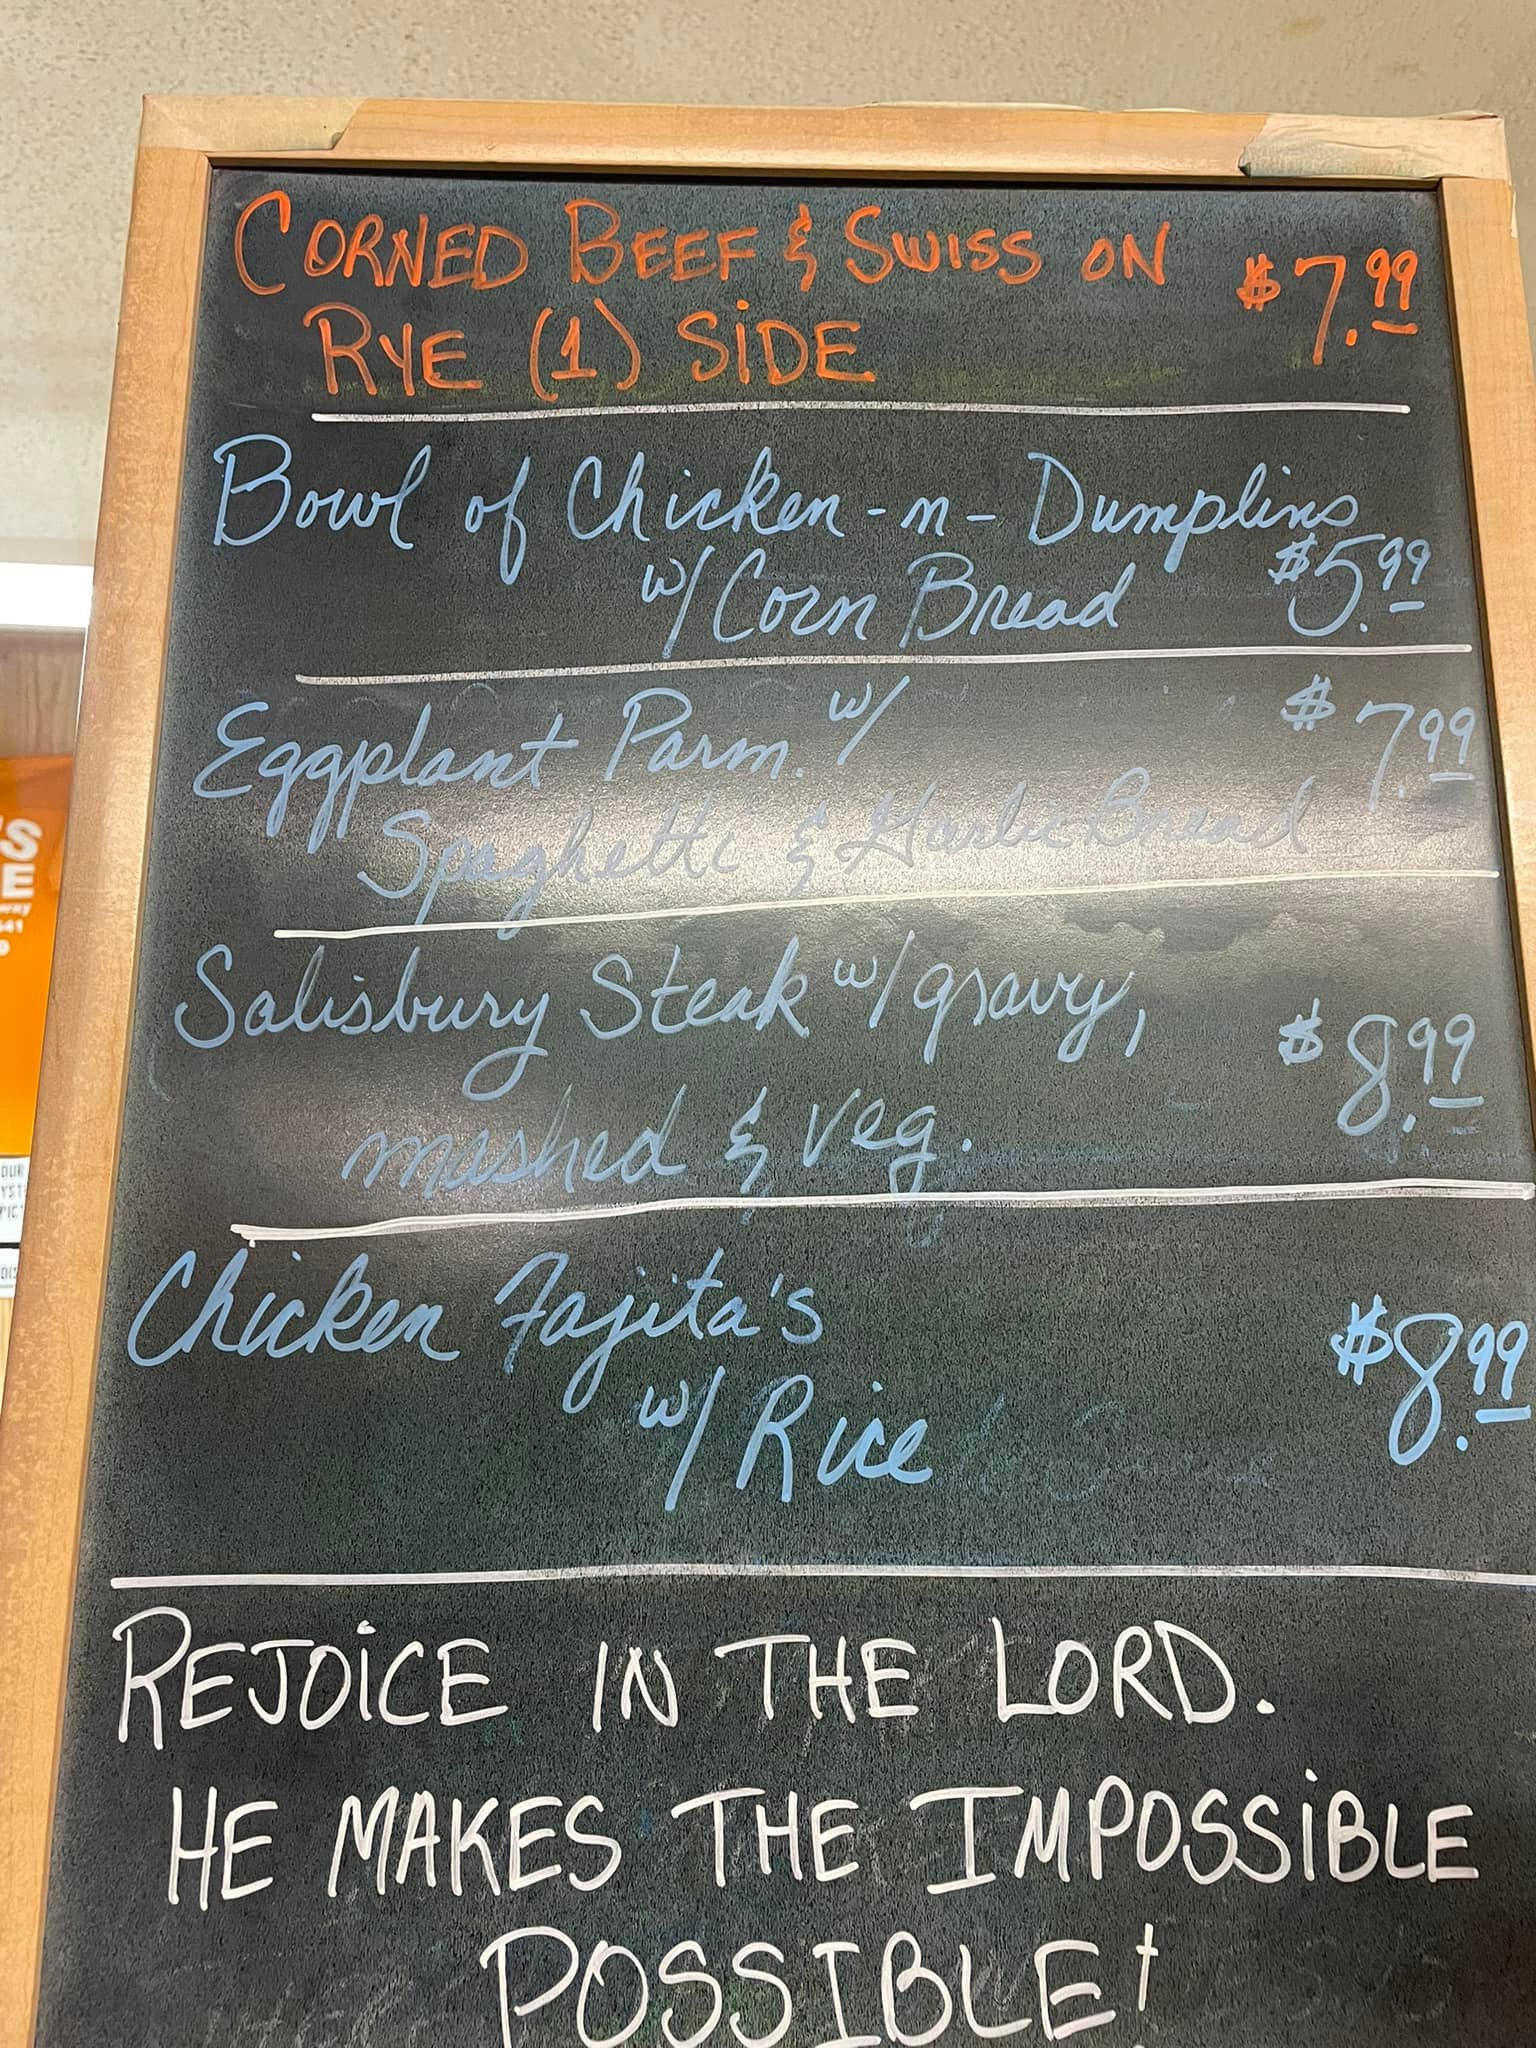 CORNED BEEF & SWISS ON $7.99
RYE (1) SIDE
Bowl of Chicken-n-Dumplins
w/ Corn Bread $5.99
Eggplant Parm. w/ $7.99
Spaghetti & Garlic Bread
Salisbury Steak w/ gravy, $8.99
mashed & veg.
Chicken Fajita's $8.99
w/ Rice
REJOICE IN THE LORD.
HE MAKES THE IMPOSSIBLE
POSSIBLE!
'S
E